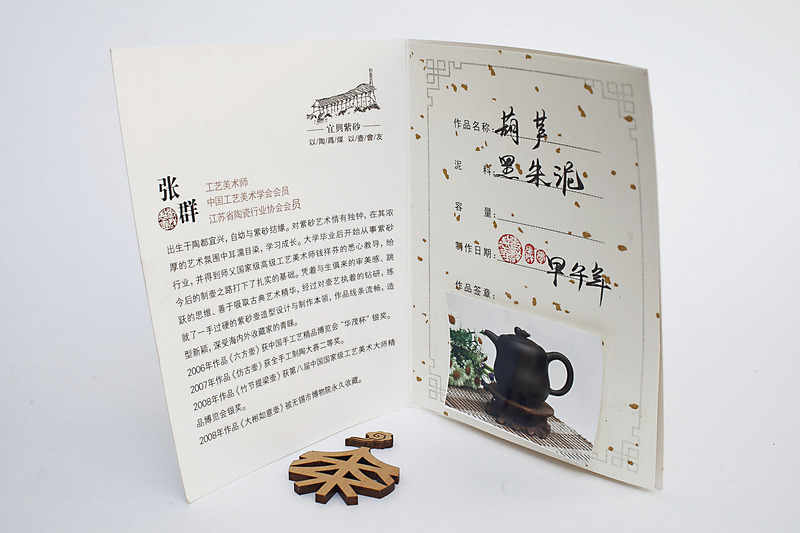 宜興紫砂
以/陶/爲/媒 以/壺/會/友
张群
工艺美术师
中国工艺美术学会会员
江苏省陶瓷行业协会会员
出生于陶都宜兴，自幼与紫砂结缘。对紫砂艺术情有独钟，在其浓
厚的艺术氛围中耳濡目染，学习成长。大学毕业后开始从事紫砂
行业，并得到师父国家级高级工艺美术师钱祥芬的悉心教导，给
今后的制壶之路打下了扎实的基础。凭着与生俱来的审美感、跳
跃的思维、善于吸取古典艺术精华，经过对壶艺执着的钻研，练
就了一手过硬的紫砂壶造型设计与制作本领，作品线条流畅，造
型新颖，深受海内外收藏家的青睐。
2006年作品《六方壶》获中国手工艺精品博览会“华茂杯”银奖。
2007年作品《仿古壶》获全手工制陶大赛二等奖。
2008年作品《竹节提梁壶》获第八届中国国家级工艺美术大师精
品博览会银奖。
2008年作品《大彬如意壶》被无锡市博物院永久收藏。
作品名称：葫芦
泥 料：黑朱泥
容 量：
制作日期：甲午年
作品签章：